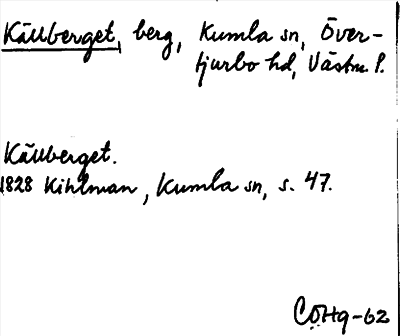 Källberget, berg, Kumla sn, Över-
tjurbo hd, Västm l.
Källberget.
1828 Kihlman, Kumla sn, s. 47.
CÖHq-62